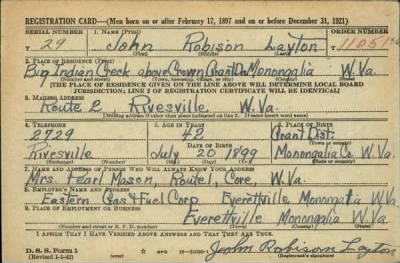 REGISTRATION CARD—(Men born on or after February 17, 1897 and on or before December 31, 1921)
SERIAL NUMBER 1. NAME (Print) ORDER NUMBER
T 29 John Robison Layton 11051
(First) (Middle) (Last)
2. PLACE OF RESIDENCE (Print)
Big Indian Creek above Crown Grant Da Monongalia W. Va.
[THE PLACE OF RESIDENCE GIVEN ON THE LINE ABOVE WILL DETERMINE LOCAL BOARD
JURISDICTION; LINE 2 OF REGISTRATION CERTIFICATE WILL BE IDENTICAL]
3. MAILING ADDRESS
Route 2 Rivesville W. Va.
[Mailing address if other than place indicated on line 2. If same insert word same]
4. TELEPHONE 5. AGE IN YEARS 6. PLACE OF BIRTH
2729 42 Grant Dist.
DATE OF BIRTH (Town or county)
Rivesville July 20 1899 Monongalia Co. W. Va.
(Exchange) (Number) (Mo.) (Day) (Yr.) (State or country)
7. NAME AND ADDRESS OF PERSON WHO WILL ALWAYS KNOW YOUR ADDRESS
Mrs. Pearl Mason, Route 1, Core, W. Va.
8. EMPLOYER'S NAME AND ADDRESS
Eastern Gas & Fuel Corp. Everettville Monongalia W. Va.
9. PLACE OF EMPLOYMENT OR BUSINESS
Everettville Monongalia W. Va.
(Number and street or R. F. D. number) (Town) (County) (State)
I AFFIRM THAT I HAVE VERIFIED ABOVE ANSWERS AND THAT THEY ARE TRUE.
D. S. S. Form 1
(Revised 1-5-42) John Robison Layton
(Registrant's signature)